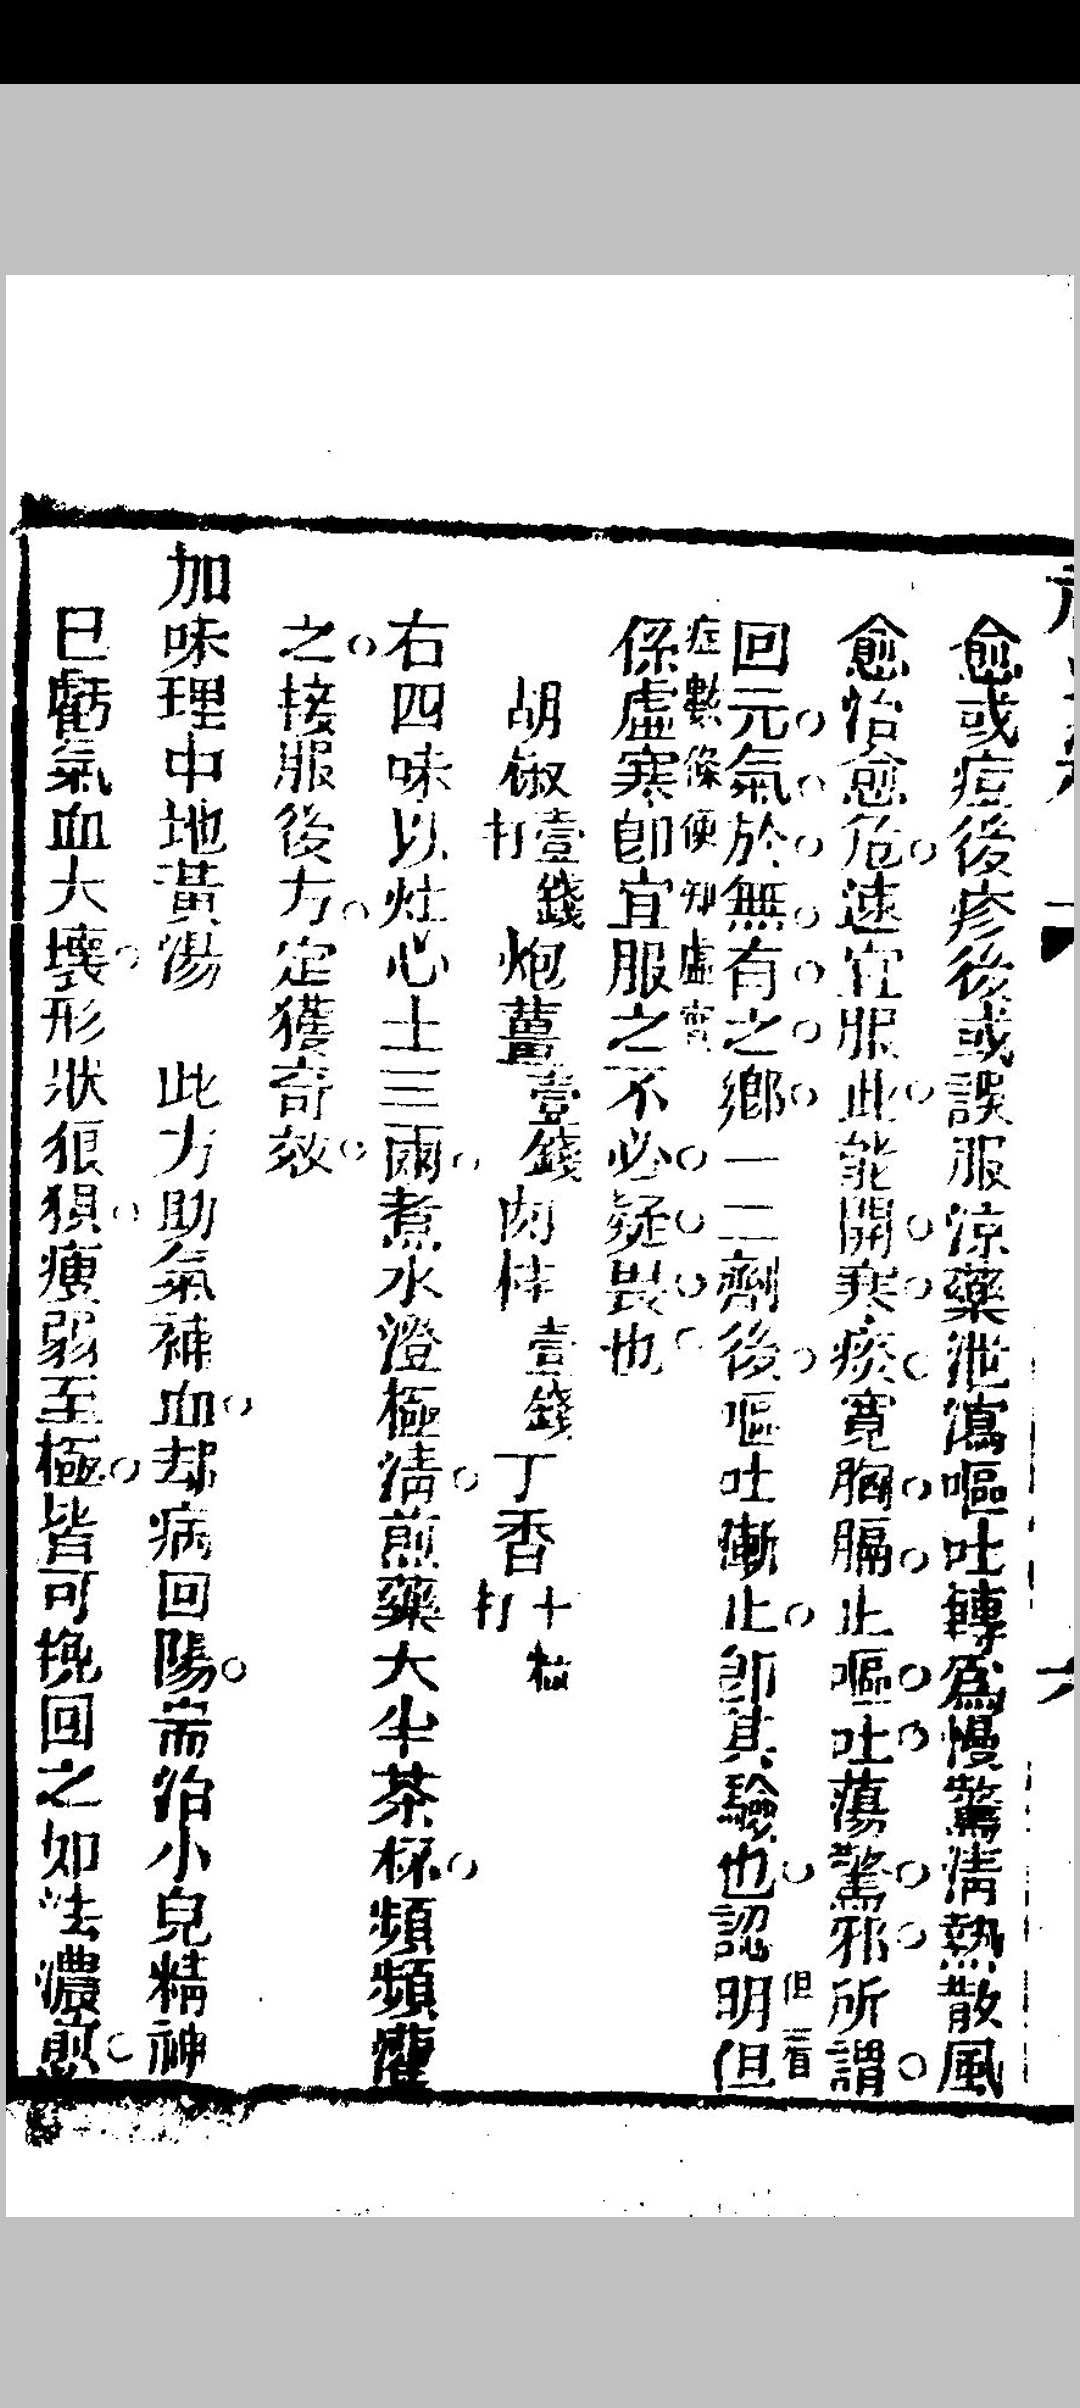 愈或痘後疹後或誤服涼藥泄瀉嘔吐轉為慢驚清熱散風
愈治愈危速宜服此能開寒痰寬胸膈止嘔吐蕩驚邪所謂
回元氣於無有之鄉一二劑後嘔吐漸止即其驗也認明但
但看
症數條便知虛實
係虛寒卽宜服之不必疑畏也
胡椒壹錢打炮薑壹錢肉桂壹錢丁香十粒打
右四味以灶心土三兩煮水澄極清煎藥大半茶杯頻頻灌
之接服後方定獲奇效
加味理中地黃湯 此方助氣補血却病回陽耑治小兒精神
已虧氣血大壞形狀狼狽瘦弱至極皆可挽回之如法濃煎